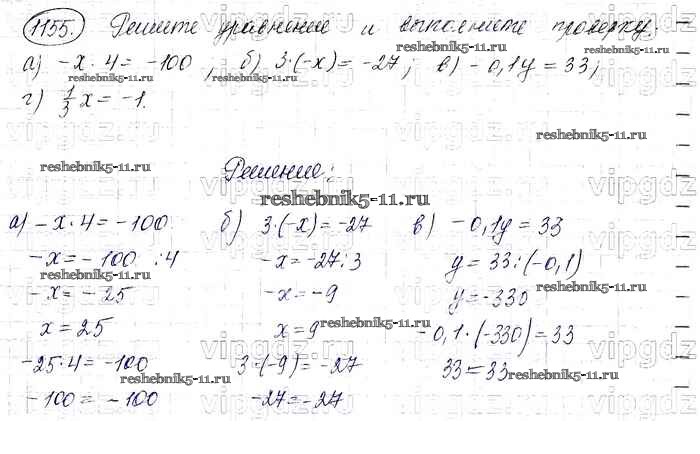 1155. Решите уравнение и выполните проверку:
а) -x · 4 = -100, б) 3·(-x) = -27; в) -0,1y = 33;
г) 1/3 x = -1.
Решение:
а) -x·4 = -100 б) 3·(-x) = -27 в) -0,1y = 33
-x = -100 :4 -x = -27:3 y = 33:(-0,1)
-x = -25 -x = -9 y = -330
x = 25 x = 9 -0,1·(-330) = 33
-25·4 = -100 3·(-9) = -27 33 = 33
-100 = -100 -27 = -27
reshebnik5-11.ru
vipgdz